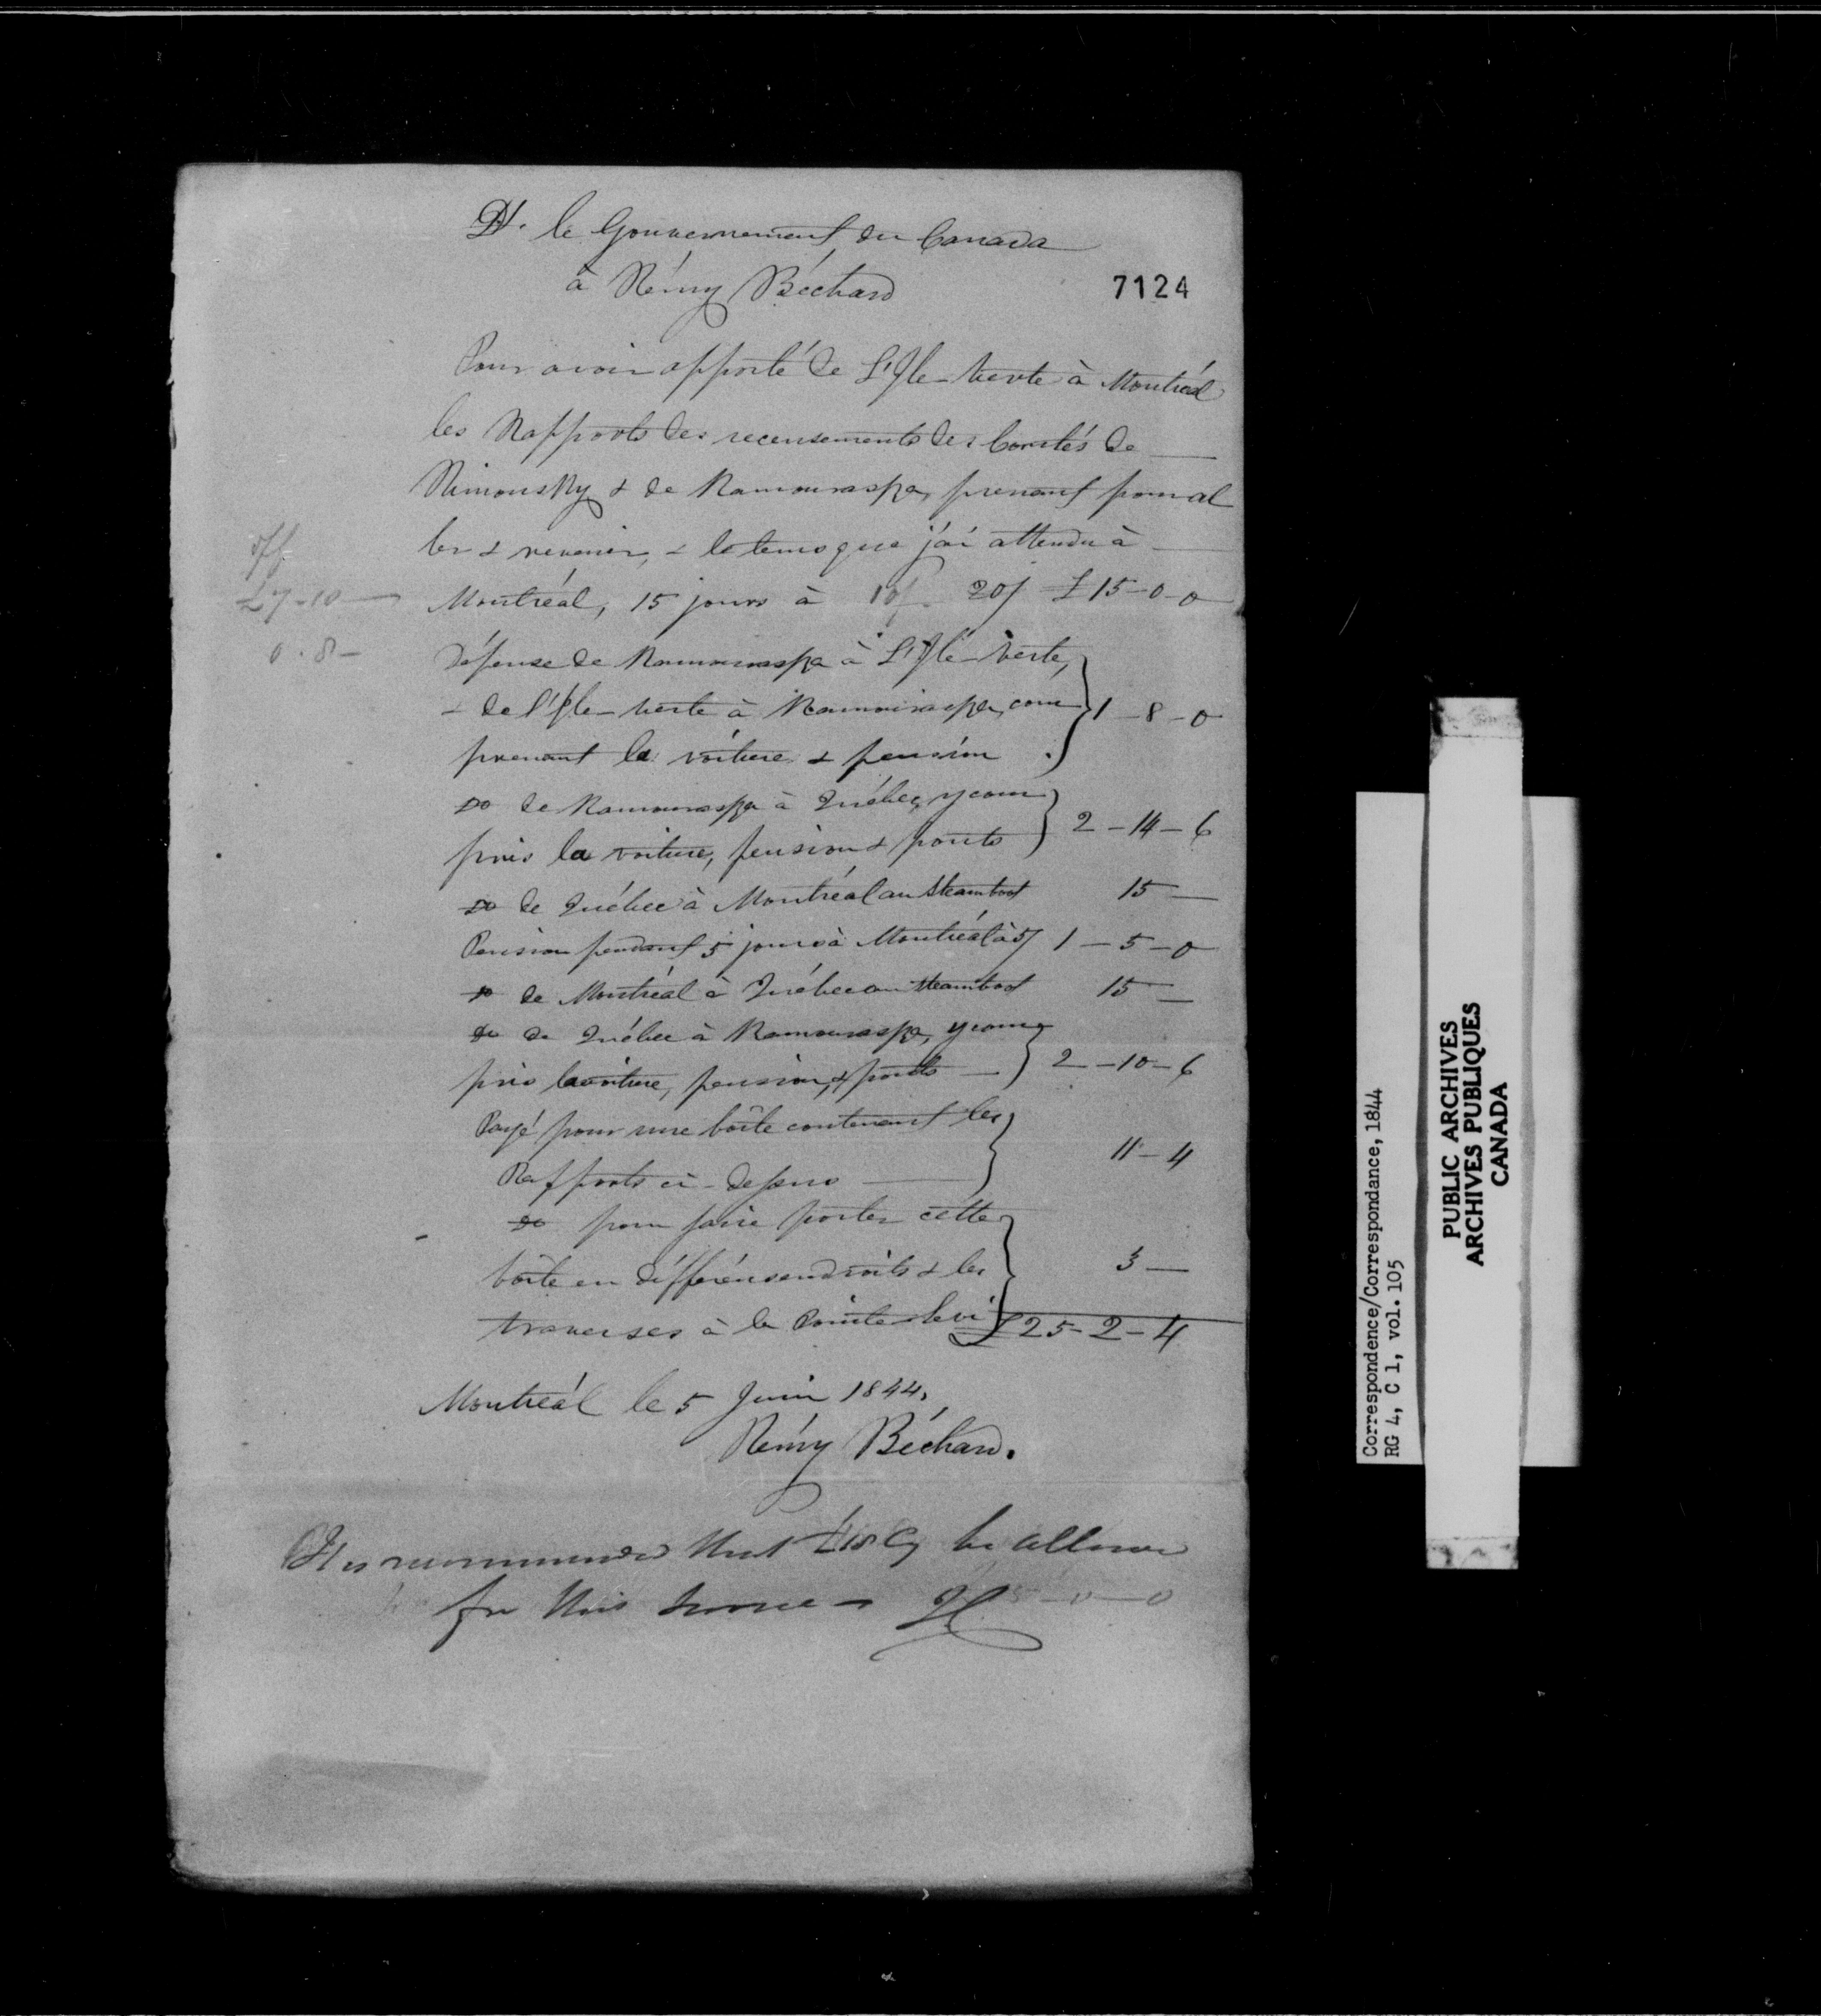 Dt. le Gouvernement du Canada
à Rémy Béchard
7124
Pour avoir apporté de L'Ile-Verte à Montréal
les Rapports des recensements des Comtés de
Rimousky & de Kamouraska, prenant pour al
ler & revenir, & le tems que j'ai attendu à
off
£7-10 —
0.8 —
Montréal, 15 jours à 20/ £15-0-0
Dépense de Kamouraska à L'Ile-Verte,
& de l'Ile-Verte à Kamouraska, com
prenant la voiture & pension 1-8-0
do de Kamouraska à Québec, y com
pris la voiture, pension & ponts 2-14-6
do de Québec à Montréal au Steamboat 15 —
Pension pendant 5 jours à Montréal à 5/ 1-5-0
do de Montréal à Québec au Steamboat 15 —
do de Québec à Kamouraska, y com
pris la voiture, pension, & ponts — 2-10-6
Payé pour une boîte contenant les
Rapports ci-dessus — 11-4
do pour faire porter cette
boîte en différens endroits & les 3 —
traverses à la Pointe Levi £25-2-4
Montréal le 5 Juin 1844,
Rémy Béchard.
It is recommended that £18 Cy be allowed
for this service
Correspondence/Correspondance, 1844
RG 4, C 1, vol. 105
PUBLIC ARCHIVES
ARCHIVES PUBLIQUES
CANADA